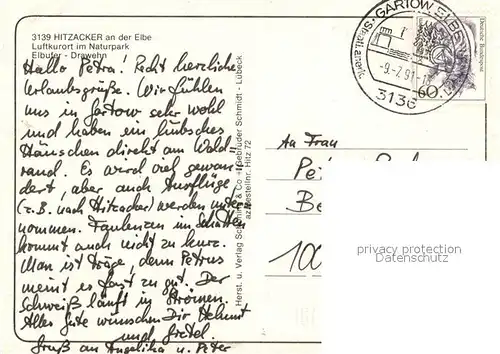 3139 HITZACKER an der Elbe
Luftkurort im Naturpark
Elbufer - Drawehn
Hallo Petra! Recht herzliche
Urlaubsgrüße. Wir fühlen
uns in Gartow sehr wohl
und haben ein hübsches
Häuschen direkt am Wald-
rand. Es wird viel gewan-
dert, aber auch Ausflüge
(z.B. nach Hitzacker) werden unter-
nommen. Faulenzen im Schatten
kommt auch nicht zu kurz.
Man ist träge, denn Petrus
meint es fast zu gut. Der
Schweiß läuft in Strömen.
Alles Gute wünschen Dir Helmut
und Gretel.
Gruß an Angelika u. Peter
Herst. u. Verlag Schöning & Co + Gebrüder Schmidt - Lübeck
Bestellnr. Hitz 72
GARTOW, ELBE
Staatl. anerk.
-9.-7.91-1
3136
Deutsche Bundespost
60
An Frau
Pe
Be
100
privacy protection
Datenschutz